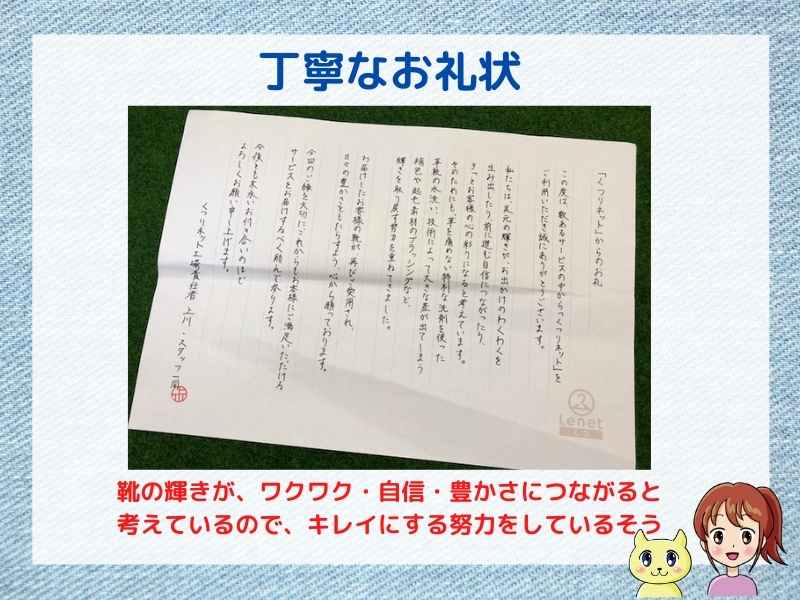 丁寧なお礼状
「くつリネット」からのお礼
この度は、数あるサービスの中から「くつリネット」を
ご利用いただき誠にありがとうございます。
私たちは、足元の輝きが、お出かけのわくわくを
生み出したり、前に進む自信につながったり、
きっとお客様の心の彩りになると考えています。
そのためにも、革を痛めない特別な洗剤を使った
革靴の水洗い、技術によって大きな差が出てしまう
補色や起毛素材のブラッシングなど、
輝きを取り戻す努力を重ねてきました。
お届けしたお客様の靴が、再びご愛用され、
日々の豊かさをもたらすよう、心から願っております。
今回のご縁を大切に、これからもお客様にご満足いただける
サービスをお届けするべく励んで参ります。
今後とも末永いお付き合いのほど
よろしくお願い申し上げます。
くつリネット工場責任者 上川・スタッフ一同
Lenet
くつ
靴の輝きが、ワクワク・自信・豊かさにつながると
考えているので、キレイにする努力をしているそう